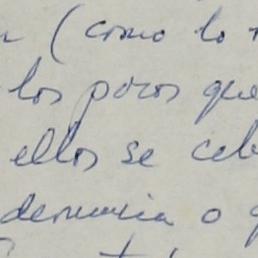 (como lo
los pocos que
ellos se
denuncia o